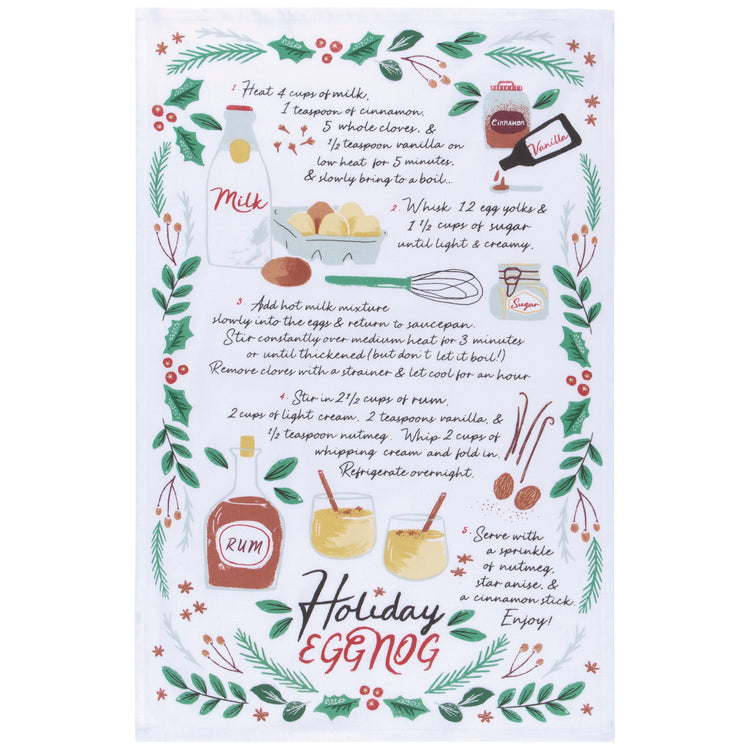 1. Heat 4 cups of milk,
1 teaspoon of cinnamon,
5 whole cloves, &
1/2 teaspoon vanilla on
low heat for 5 minutes,
& slowly bring to a boil..
Cinnamon
Vanilla
Milk
2. Whisk 12 egg yolks &
1 1/2 cups of sugar
until light & creamy.
Sugar
3. Add hot milk mixture
slowly into the eggs & return to saucepan.
Stir constantly over medium heat for 3 minutes
or until thickened (but don't let it boil!)
Remove cloves with a strainer & let cool for an hour
4. Stir in 2 1/2 cups of rum,
2 cups of light cream, 2 teaspoons vanilla, &
1/2 teaspoon nutmeg. Whip 2 cups of
whipping cream and fold in.
Refrigerate overnight.
RUM
5. Serve with
a sprinkle
of nutmeg,
star anise, &
a cinnamon stick.
Enjoy!
Holiday
EGGNOG